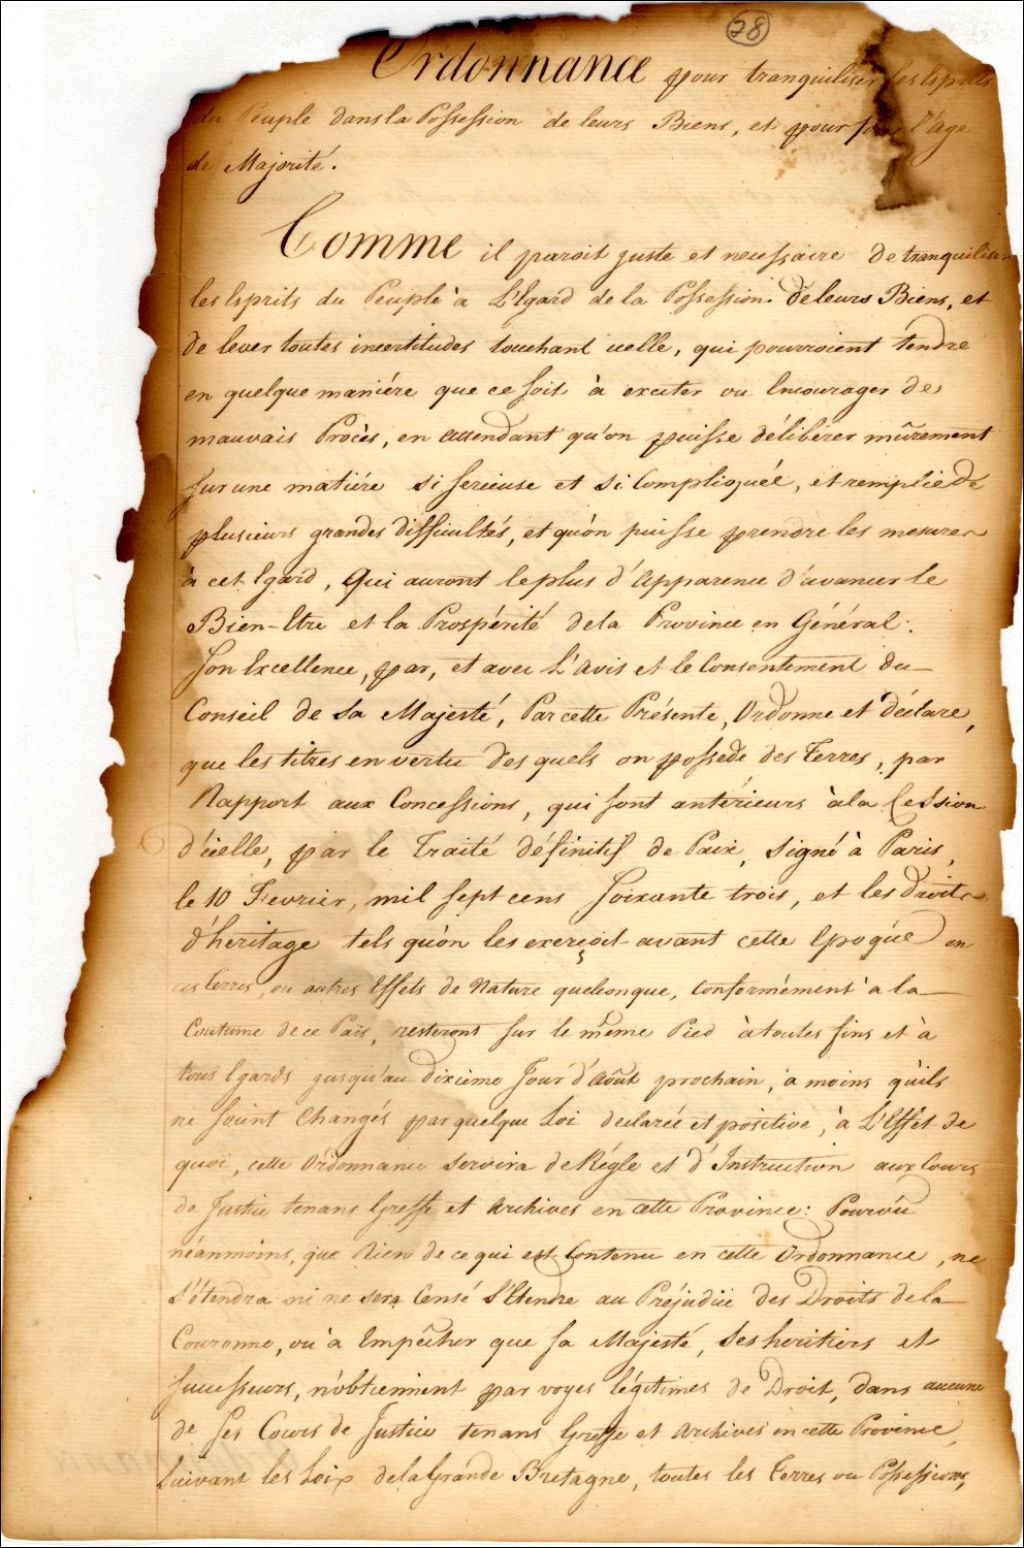 28
Ordonnance pour tranquiliser les Esprits
du Peuple dans la Possession de leurs Biens, et pour l'age
de Majorité.
Comme il paroit juste et necessaire de tranquiliser
les Esprits du Peuple à L'Egard de la Possession. de leurs Biens, et
de lever toutes incertitudes touchant icelle, qui pourroient tendre
en quelque maniére que ce soit à exciter ou Encourager de
mauvais Procès, en attendant qu'on puisse délibérer mûrement
sur une matiére si serieuse et si Compliquée, et remplie de
plusieurs grandes difficultés, et qu'on puisse prendre les mesures
à cet Egard, Qui auront le plus d'Apparence d'avancer le
Bien-Etre et la Prospérité de la Province en Général.
Son Excellence, par, et avec L'Avis et le Consentement du
Conseil de Sa Majesté, Par cette Présente, Ordonne et déclare,
que les titres en vertu des quels on possede des Terres, par
Rapport aux Concessions, qui sont antérieurs à la Cession
d'icelle, par le Traité définitif de Paix, signé à Paris,
le 10 Fevrier, mil sept cens soixante trois, et les droits
d'heritage tels qu'on les exerçoit avant cette Epoque en
ces Terres, ou autres Effets de Nature quelconque, Conformément à la
Coutume de ce Païs, resteront sur le même Pied à toutes fins et à
tous Egards jusqu'au dixiéme Jour d'Août prochain, à moins qu'ils
ne soient Changés par quelque Loi declarée et positive, à L'Effet de
quoi, cette Ordonnance servira de Régle et d'Instruction aux Cours
de Justice tenans Greffe et Archives en cette Province: Pourvû
néanmoins, que Rien de ce qui est Contenu en cette Ordonnance, ne
s'étendra ni ne sera Censé S'Etendre au Préjudice des Droits de la
Couronne, ou à Empêcher que sa Majesté, Ses heritiers et
successeurs, n'obtiennent par voyes légitimes de Droit, dans aucune
de ses Cours de Justice tenans Greffe et Archives en cette Province,
Suivant les Loix de la Grande Bretagne, toutes les Terres ou Possessions,